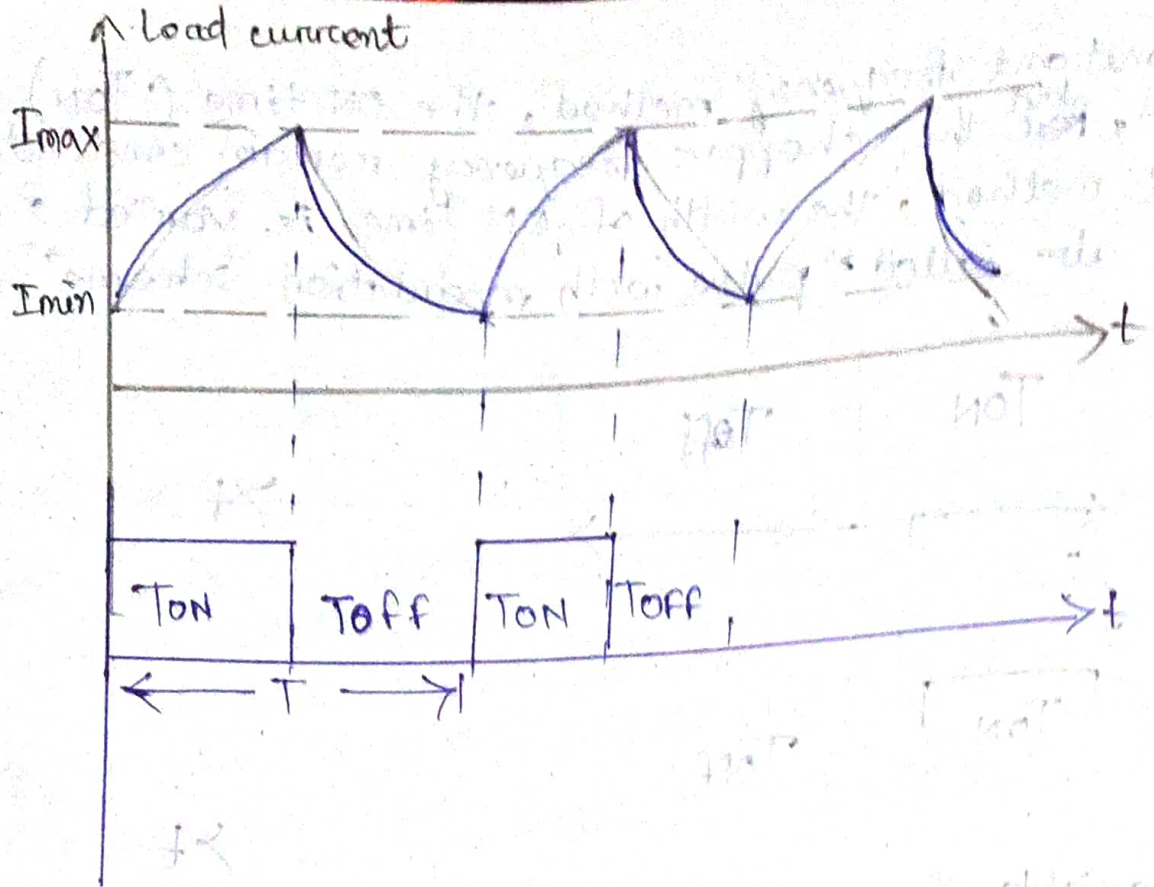 Load current
Imax
Imin
t
TON Toff TON TOFF
t
T